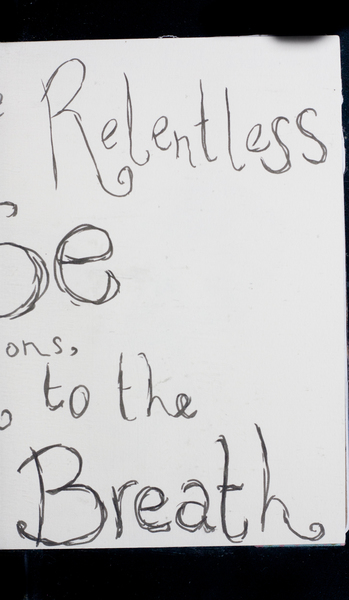 Relentless
Be
ons,
to the
Breath